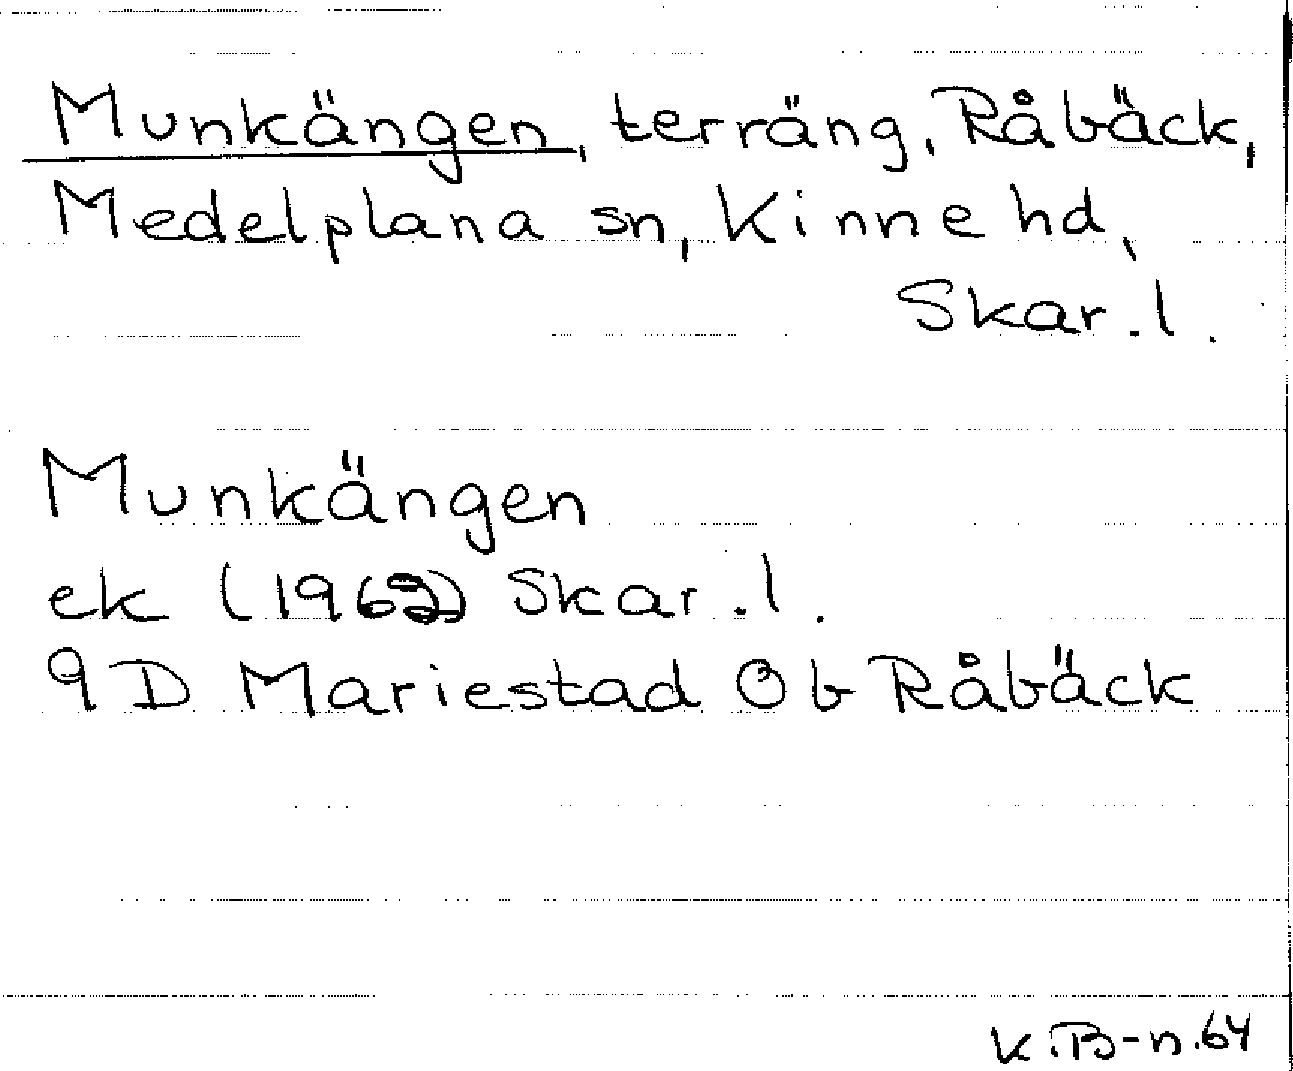 Munkängen, terräng, Råbäck,
Medelplana sn, Kinne hd,
Skar. l.
Munkängen
ek (1962) Skar. l.
9D Mariestad Ob Råbäck
K.B-n.64